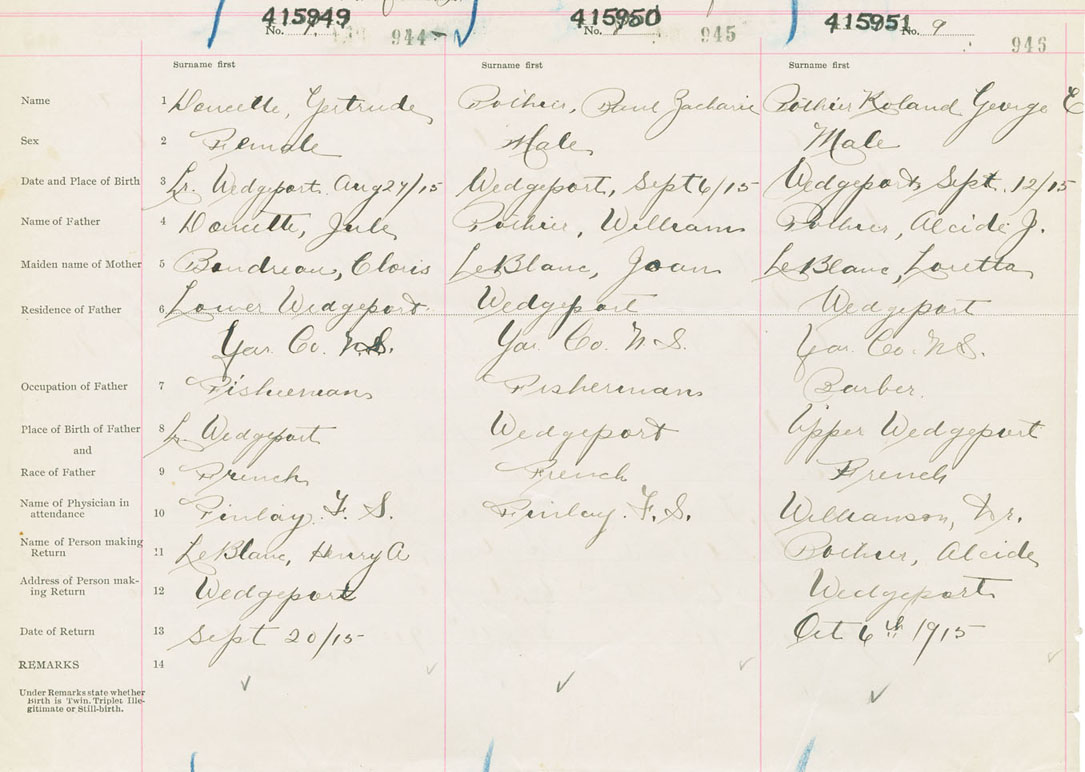 415949 415950 415951
No. No. No. 9
944 945 946
Surname first Surname first Surname first
Name 1 Doucette, Gertrude Pothier, Paul Zacharie Pothier Roland George E
Sex 2 Female Male Male
Date and Place of Birth 3 Lr. Wedgeport. Aug 27/15 Wedgeport, Sept 6/15 Wedgeport, Sept. 12/15
Name of Father 4 Doucette, Jule Pothier, William Pothier, Alcide J.
Maiden name of Mother 5 Boudreau, Cloris LeBlanc, Joan LeBlanc, Loretta
Residence of Father 6 Lower Wedgeport Wedgeport Wedgeport
Yar. Co. N.S. Yar. Co. N.S. Yar. Co. N.S.
Occupation of Father 7 Fisherman Fisherman Barber
Place of Birth of Father 8 Lr. Wedgeport Wedgeport Upper Wedgeport
and
Race of Father 9 French French French
Name of Physician in
attendance 10 Finlay. F. S. Finlay. F. S. Williamson, Dr.
Name of Person making
Return 11 LeBlanc, Henry A Pothier, Alcide
Address of Person mak-
ing Return 12 Wedgeport Wedgeport
Date of Return 13 Sept 20/15 Oct 6th 1915
REMARKS 14
Under Remarks state whether
Birth is Twin, Triplet, Ille-
gitimate or Still-birth.